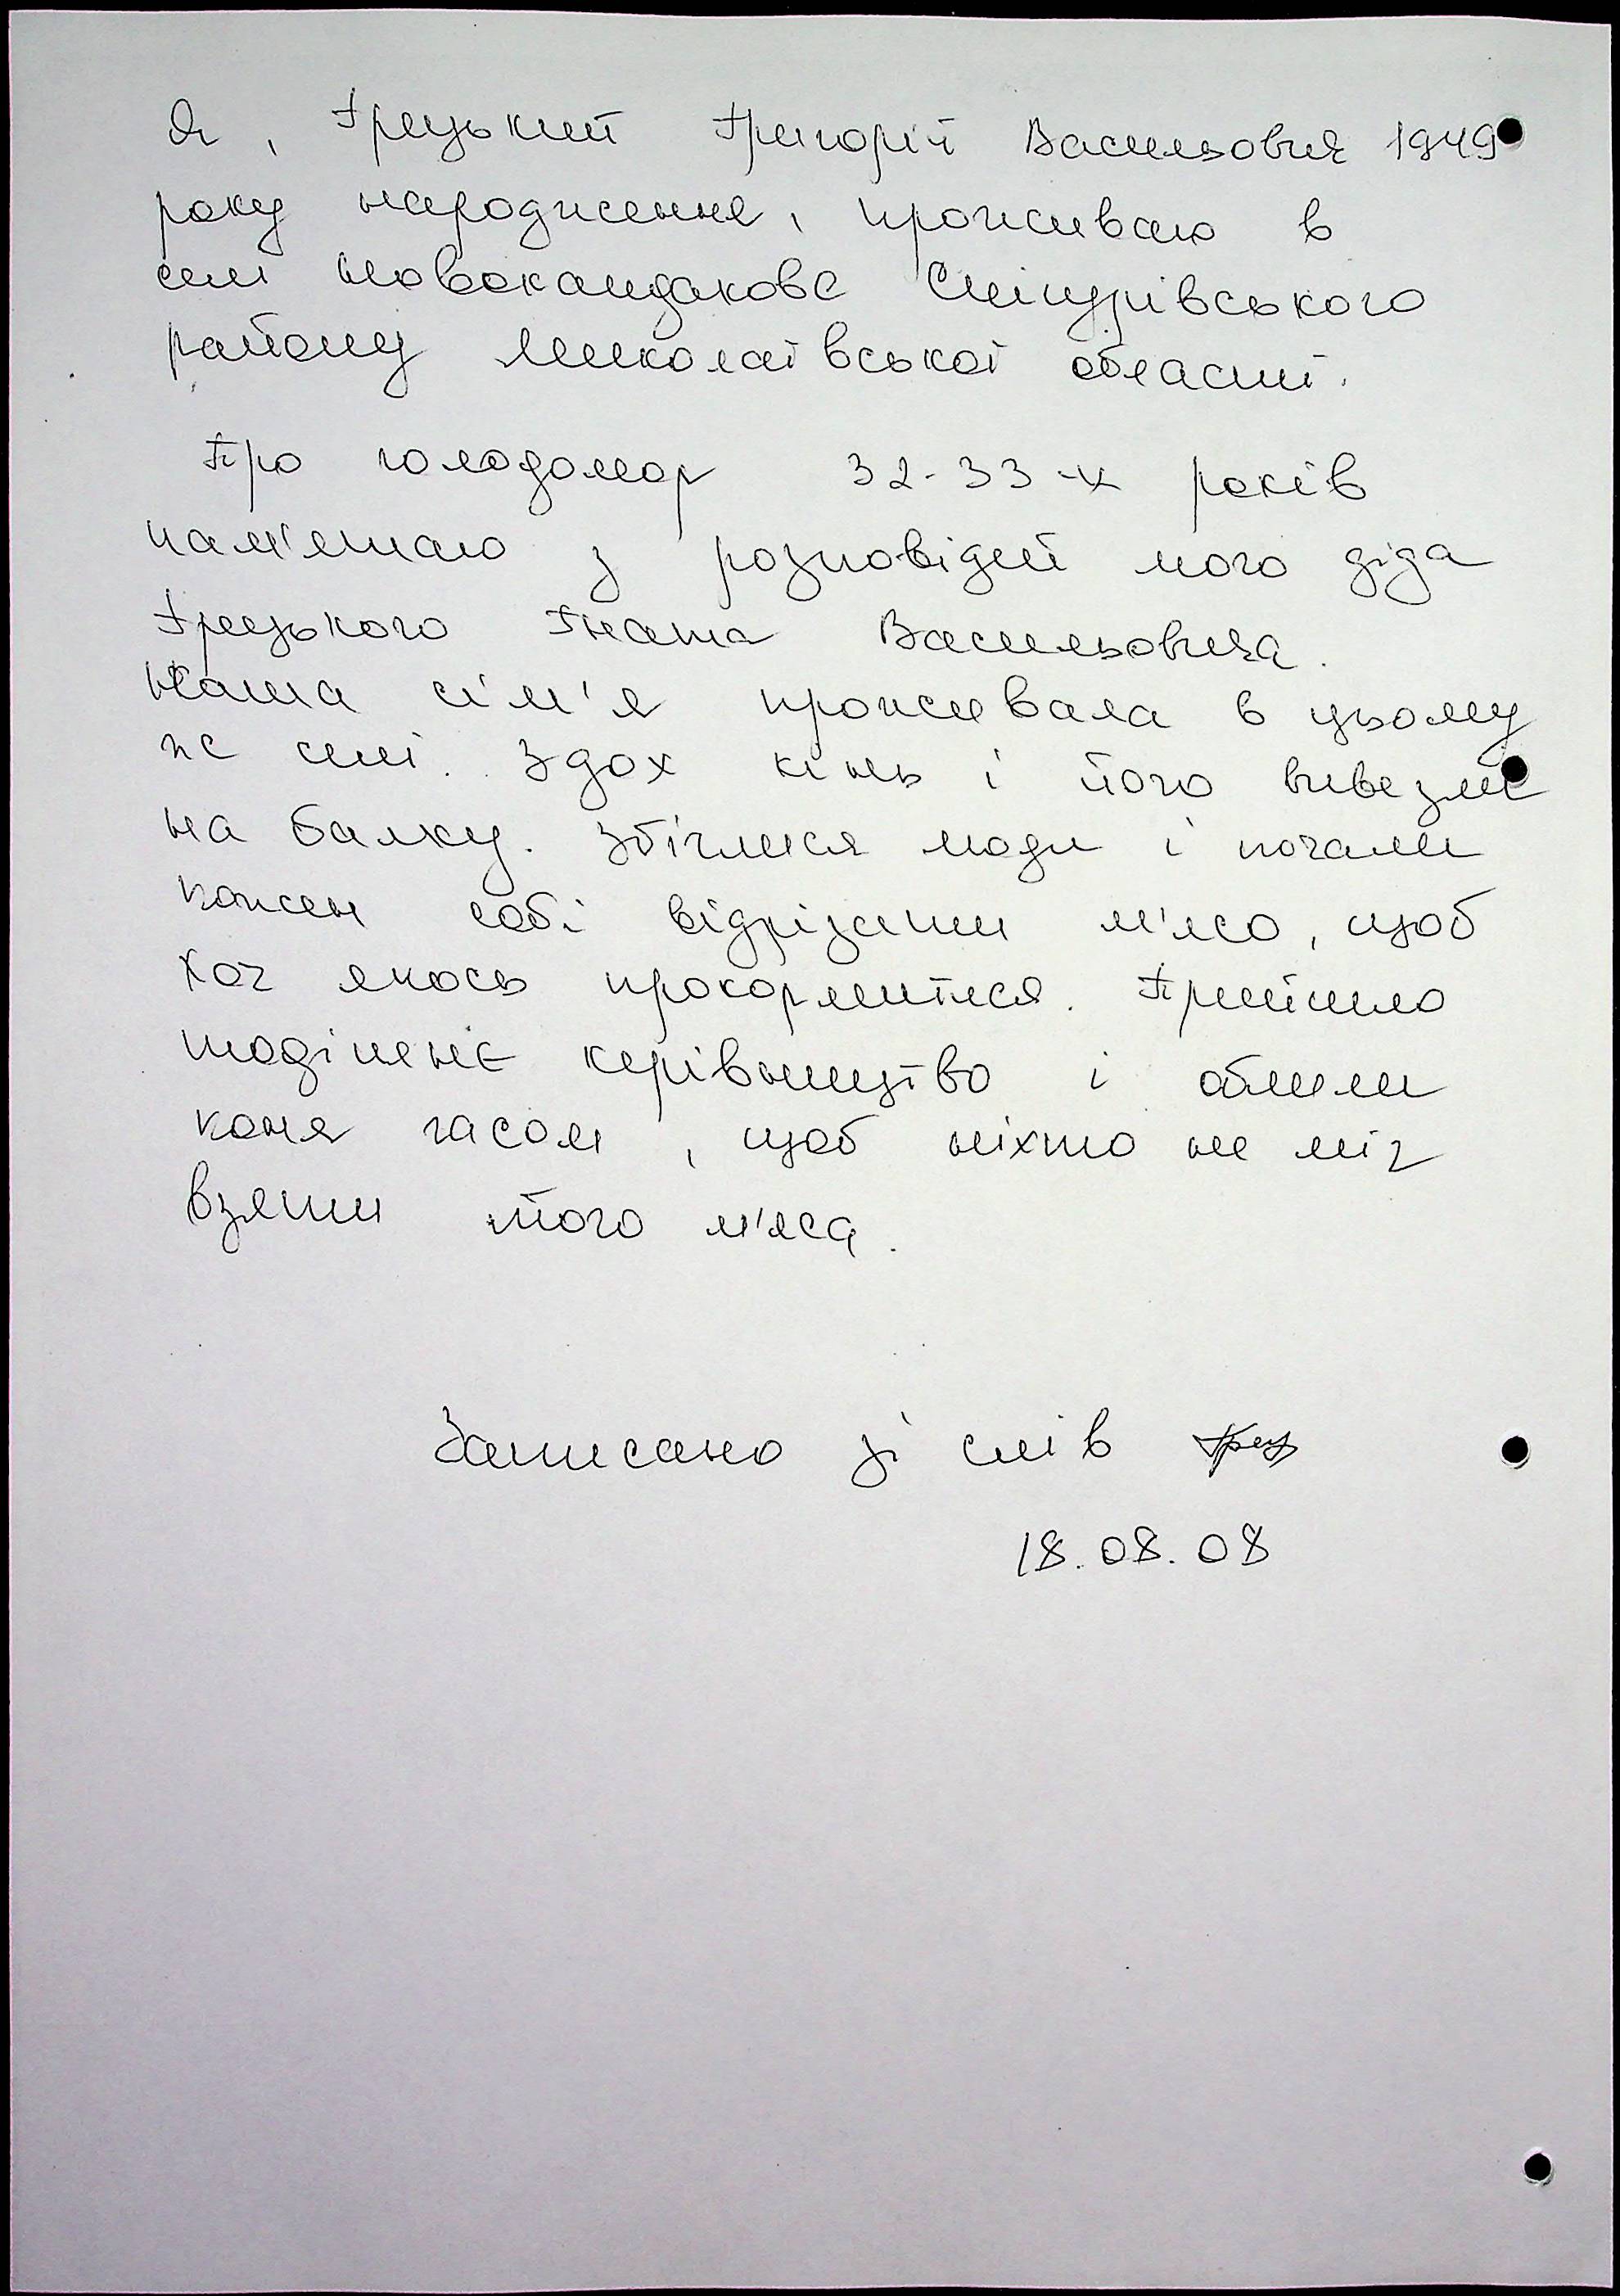 Я, Грецький Григорій Васильович 1949
року народження, проживаю в
селі Новокандакове Снігурівського
району Миколаївської області.
Про голодомор 32-33-х років
пам'ятаю з розповідей мого діда
Грецького Гната Васильовича.
Наша сім'я проживала в цьому
же селі. Здох кінь і його вивезли
на балку. Збіглися люди і почали
кожен собі відрізати м'ясо, щоб
хоч якось прокормитися. Прийшло
тодішнє керівництво і облили
коня гасом, щоб ніхто не міг
взяти того м'яса.
Записано зі слів
18.08.08